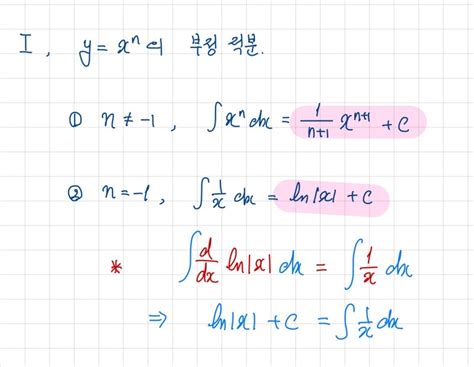 I. y = xⁿ의 부정적분.
① n ≠ -1, ∫xⁿdx = 1/(n+1) xⁿ⁺¹ + C
② n = -1, ∫1/x dx = ln|x| + C
* ∫d/dx ln|x| dx = ∫1/x dx
⇒ ln|x| + C = ∫1/x dx